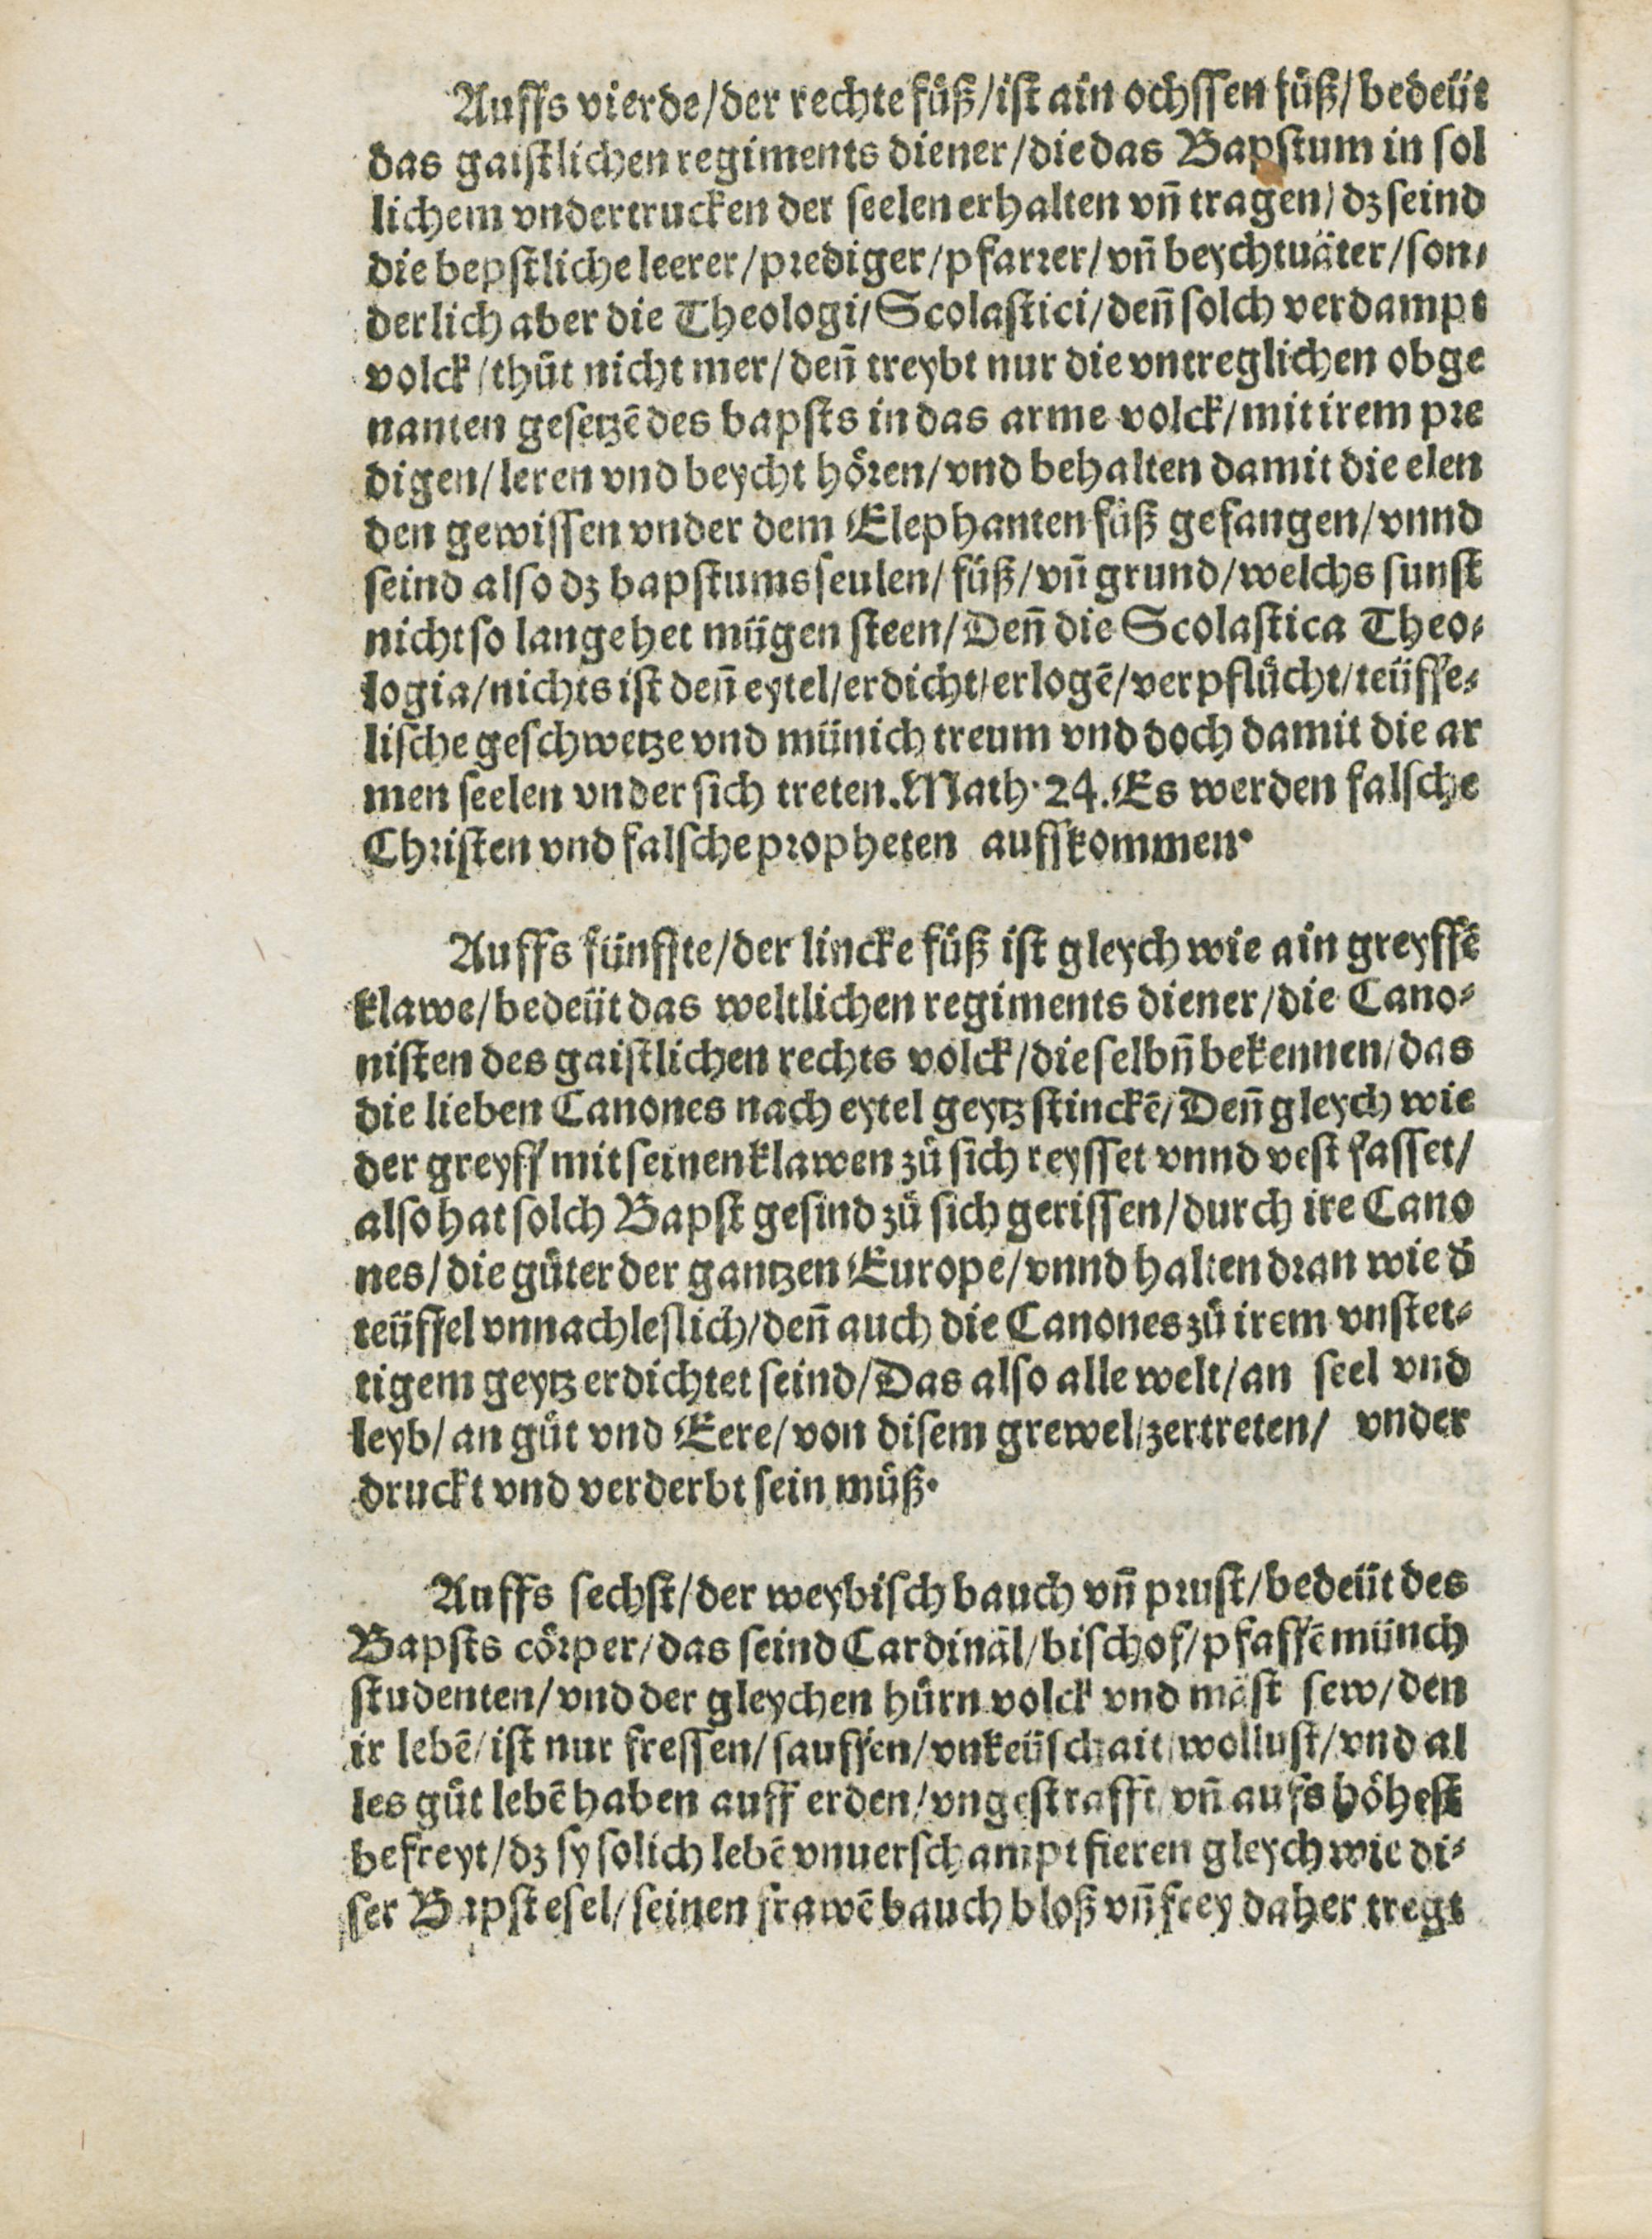 Auffs vierde/der rechte fůß/ist ain ochssen fůß/bedeüt
das gaistlichen regiments diener/die das Bapstum in sol
lichem vndertrucken der seelen erhalten vn̄ tragen/dz seind
die bepstliche leerer/prediger/pfarrer/vn̄ beychtuäter/son⸗
derlich aber die Theologi/Scolastici/den̄ solch verdampt
volck/thůt nicht mer/den̄ treybt nur die vntreglichen obge
nanten gesetzē des bapsts in das arme volck/mit irem pre
digen/leren vnd beycht hören/vnd behalten damit die elen
den gewissen vnder dem Elephanten fůß gefangen/vnnd
seind also dz bapstums seulen/fůß/vn̄ grund/welchs sunst
nicht so lange het mügen steen/Den̄ die Scolastica Theo⸗
logia/nichts ist den̄ eytel/erdicht/erlogē/verpflůcht/teüffe⸗
lische geschwetze vnd münich treum vnd doch damit die ar
men seelen vnder sich treten.Math.24.Es werden falsche
Christen vnd falsche propheten auffkommen.
Auffs fünffte/der lincke fůß ist gleych wie ain greyffē
klawe/bedeüt das weltlichen regiments diener/die Cano⸗
nisten des gaistlichen rechts volck/die selbn̄ bekennen/das
die lieben Canones nach eytel geytz stinckē/Den̄ gleych wie
der greyff mit seinen klawen zů sich reysset vnnd vest fasset/
also hat solch Bapst gesind zů sich gerissen/durch ire Cano
nes/die gůter der gantzen Europe/vnnd halten dran wie d̄
teüffel vnnachleslich/den̄ auch die Canones zů irem vnstet⸗
tigem geytz erdichtet seind/Das also alle welt/an seel vnd
leyb/an gůt vnd Eere/von disem grewel/zertreten/ vnder
druckt vnd verderbt sein můß.
Auffs sechst/der weybisch bauch vn̄ prust/bedeüt des
Bapsts cörper/das seind Cardinäl/bischof/pfaffē münch
studenten/vnd der gleychen hůrn volck vnd mäst sew/den
ir lebē/ist nur fressen/sauffen/vnkeüschait/wollust/vnd al
les gůt lebē haben auff erden/vngestrafft/vn̄ aufs höhest
befreyt/dz sy solich lebē vnuerschampt fieren gleych wie di⸗
ser Bapstesel/seinen frawē bauch bloß vn̄ frey daher tregt